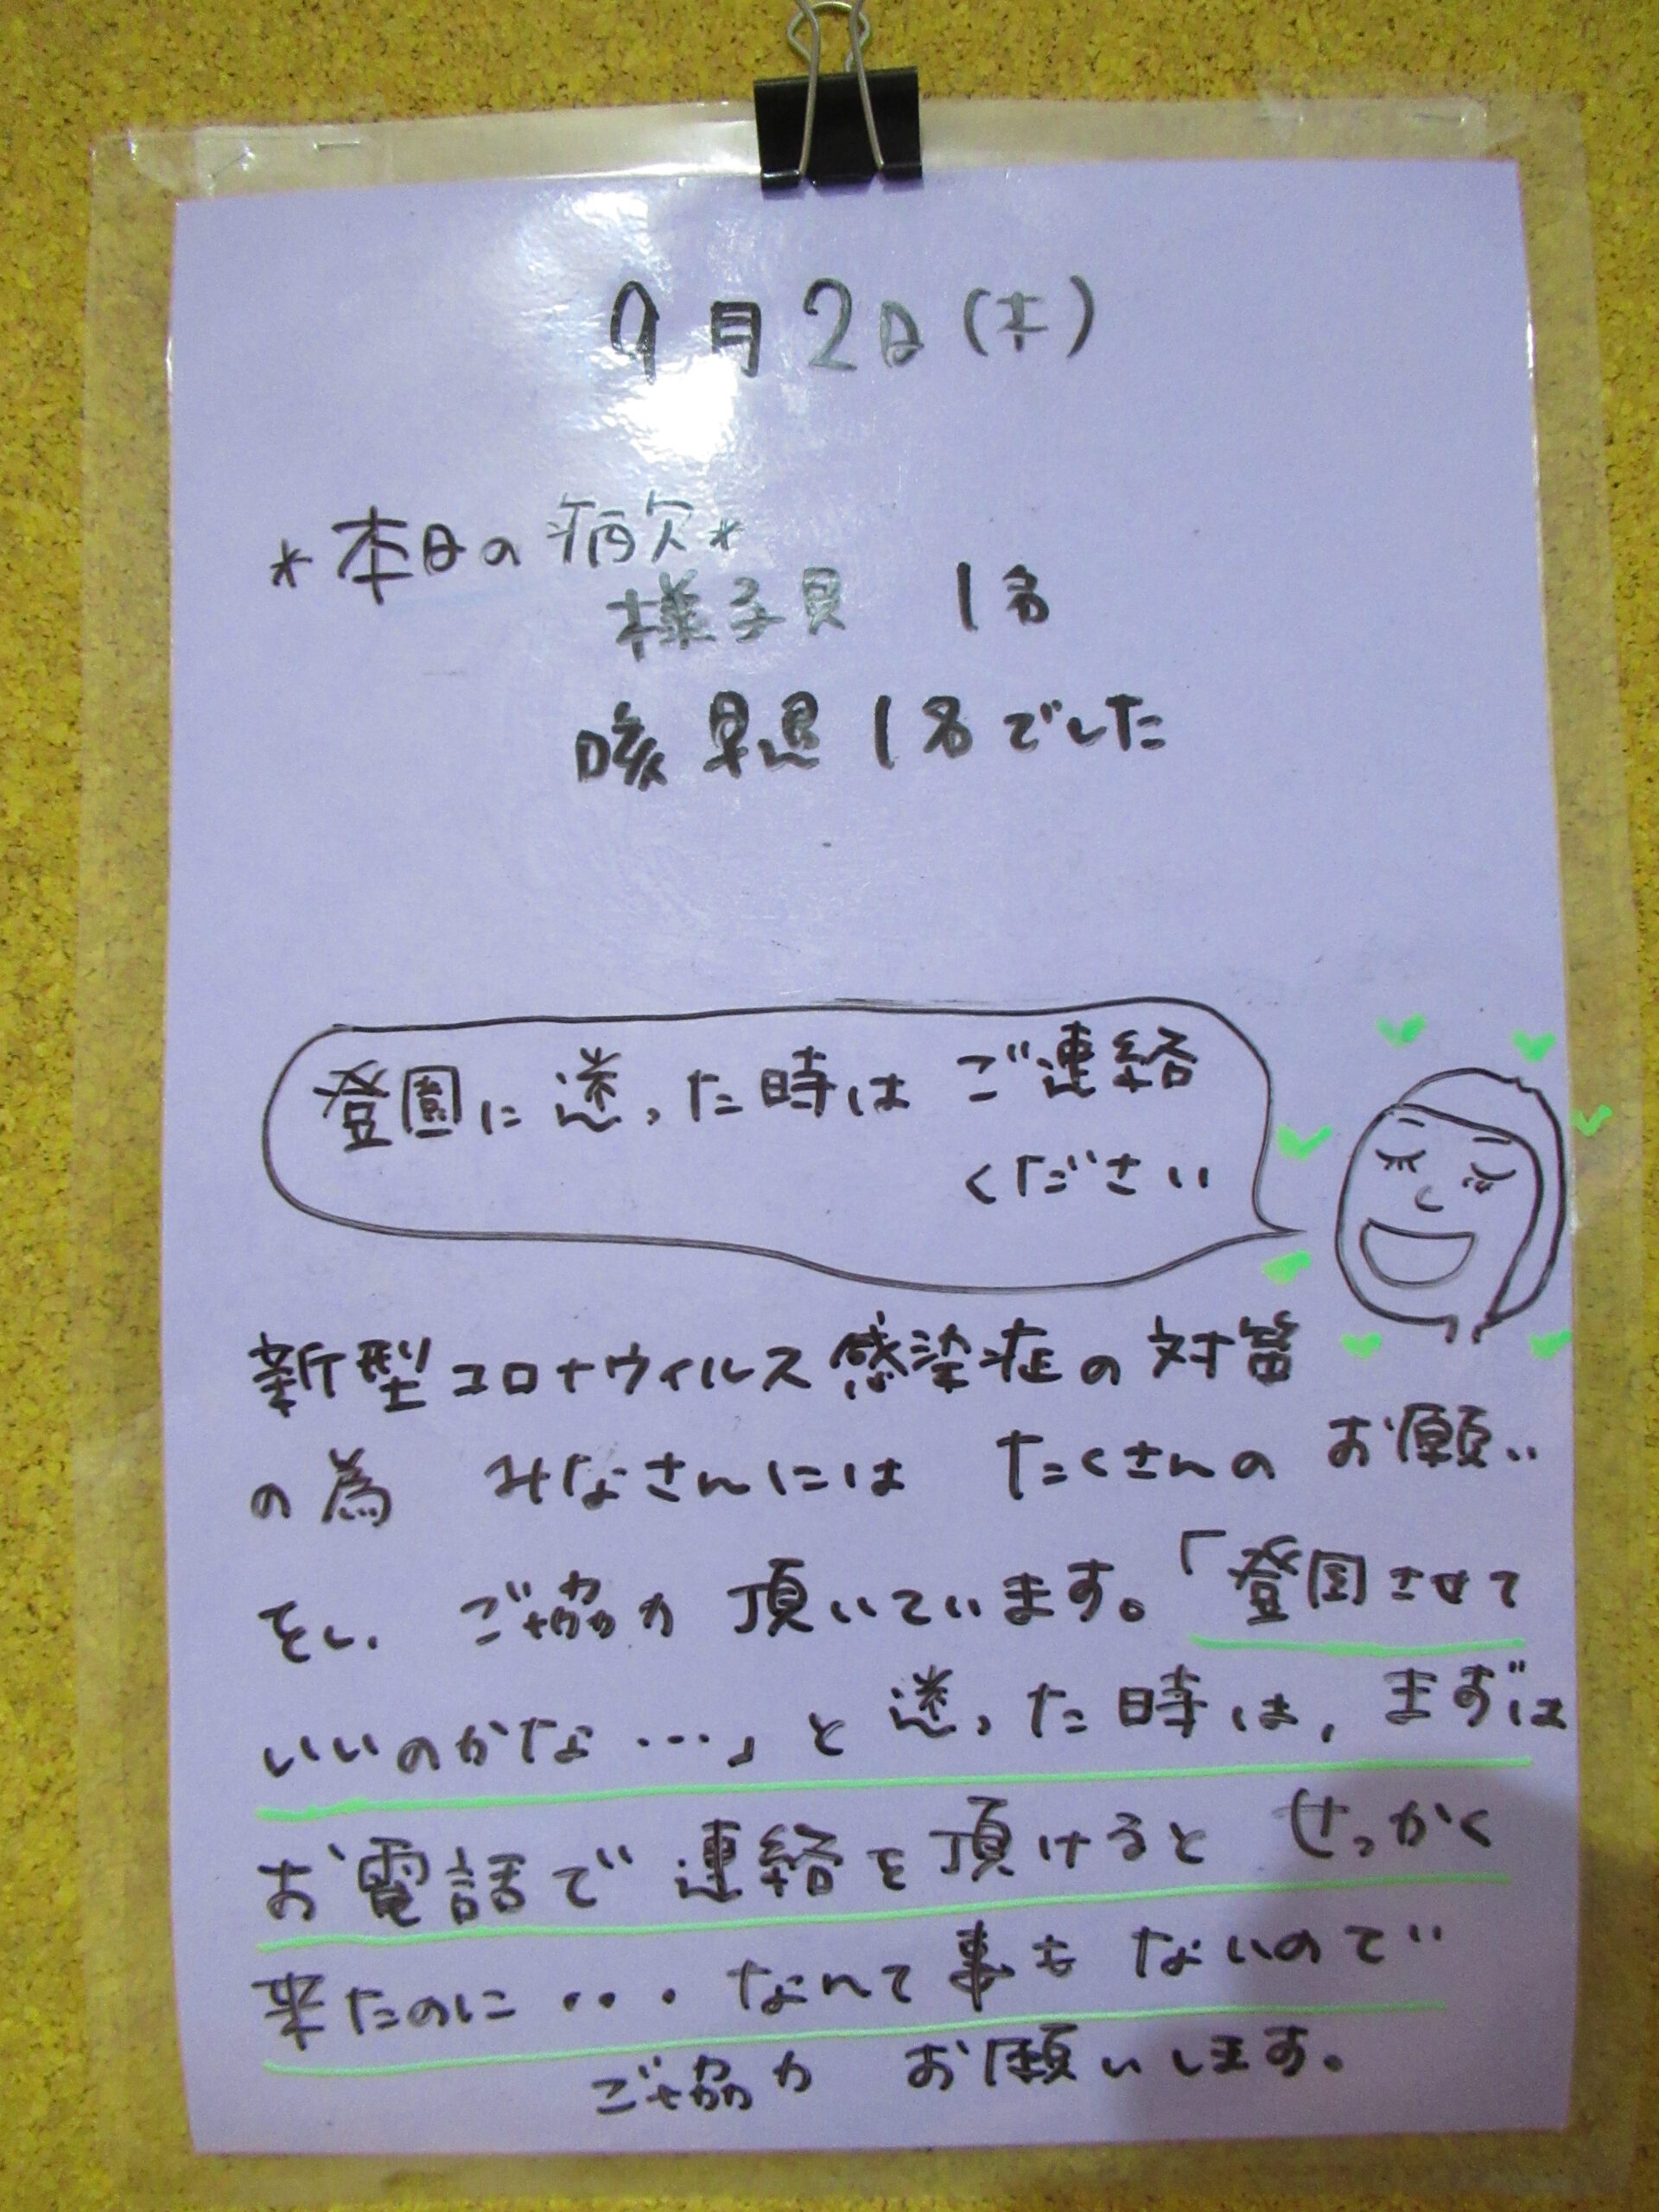 9月2日(木)
*本日の病欠*
様子見 1名
咳 早退 1名でした
登園に迷った時は ご連絡
ください
新型コロナウィルス感染症の対策
の為 みなさんには たくさんの お願い
をし、ご協力 頂いています。「登園させて
いいのかな…」と迷った時は、まずは
お電話で連絡を頂けると せっかく
来たのに・・・なんて事も ないので
ご協力 お願いします。